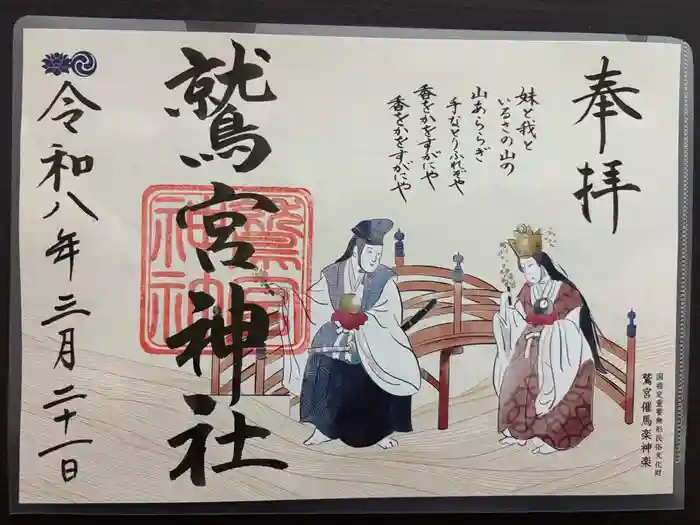 奉拝
妹と我と
いるさの山の
山あららぎ
手なとりふれそや
香をかをすがにや
香をかをすがにや
国指定重要無形民俗文化財
鷲宮催馬楽神楽
鷲宮神社
鷲宮神社
令和八年三月二十一日